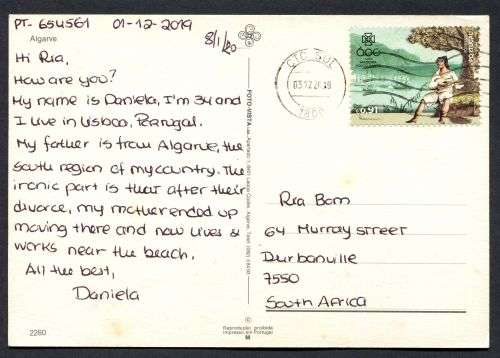 PT-654561 01-12-2019
8/1/20
Algarve
Hi Ria,
How are you?
My name is Daniela, I'm 34 and
I live in Lisboa, Portugal.
My father is from Algarve, the
South region of my country. The
ironic part is that after their
divorce, my mother ended up
moving there and now lives &
works near the beach.
All the best,
Daniela
2260
FOTO-VISTA
CTC SUL
03 12 2019
1800
Ria Bom
64 Murray street
Durbanville
7550
South Africa
©
Reprodução proibida
Impresso em Portugal
M